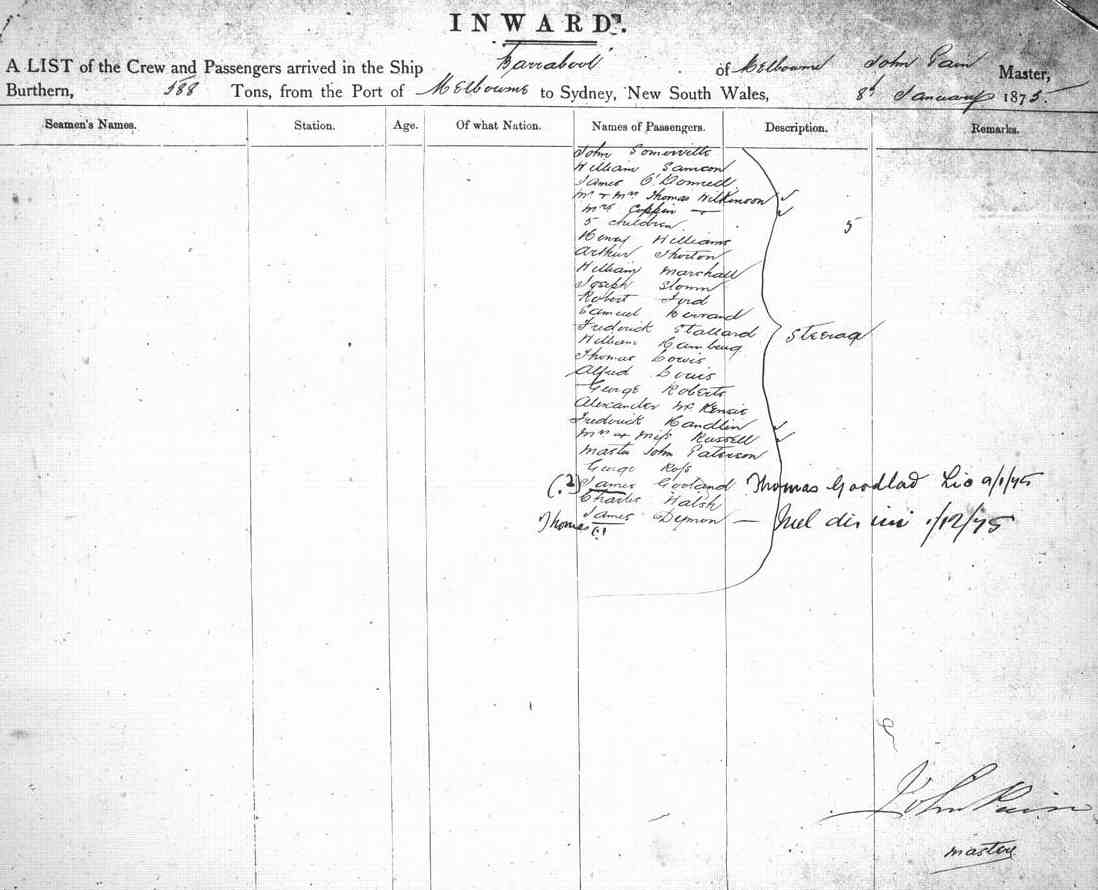 INWARDS.
A LIST of the Crew and Passengers arrived in the Ship Barrabool of Melbourne John Pain Master,
Burthern, 588 Tons, from the Port of Melbourne to Sydney, New South Wales, 8th January 1875.
Seamen's Names. Station. Age. Of what Nation. Names of Passengers. Description. Remarks.
John Somerville
William Samson
James O'Donnell
Mr & Mrs Thomas Wilkinson
Mrs Coppin
5 children 5
Henry Williams
Arthur Thorton
William Marshall
Joseph
Robert Ford
Samuel
Frederick Stallard
William Steerag
Thomas Lewis
Alfred Louis
George Roberts
Alexander McKensie
Frederick Handlin
Mrs & Miss Russell
Master John Paterson
George Ross
(.2) James Gooland Thomas Goodlad Lic 9/1/75
Charles Walsh
Thomas James Dymon — 1/12/75
(.1)
John Pain
master